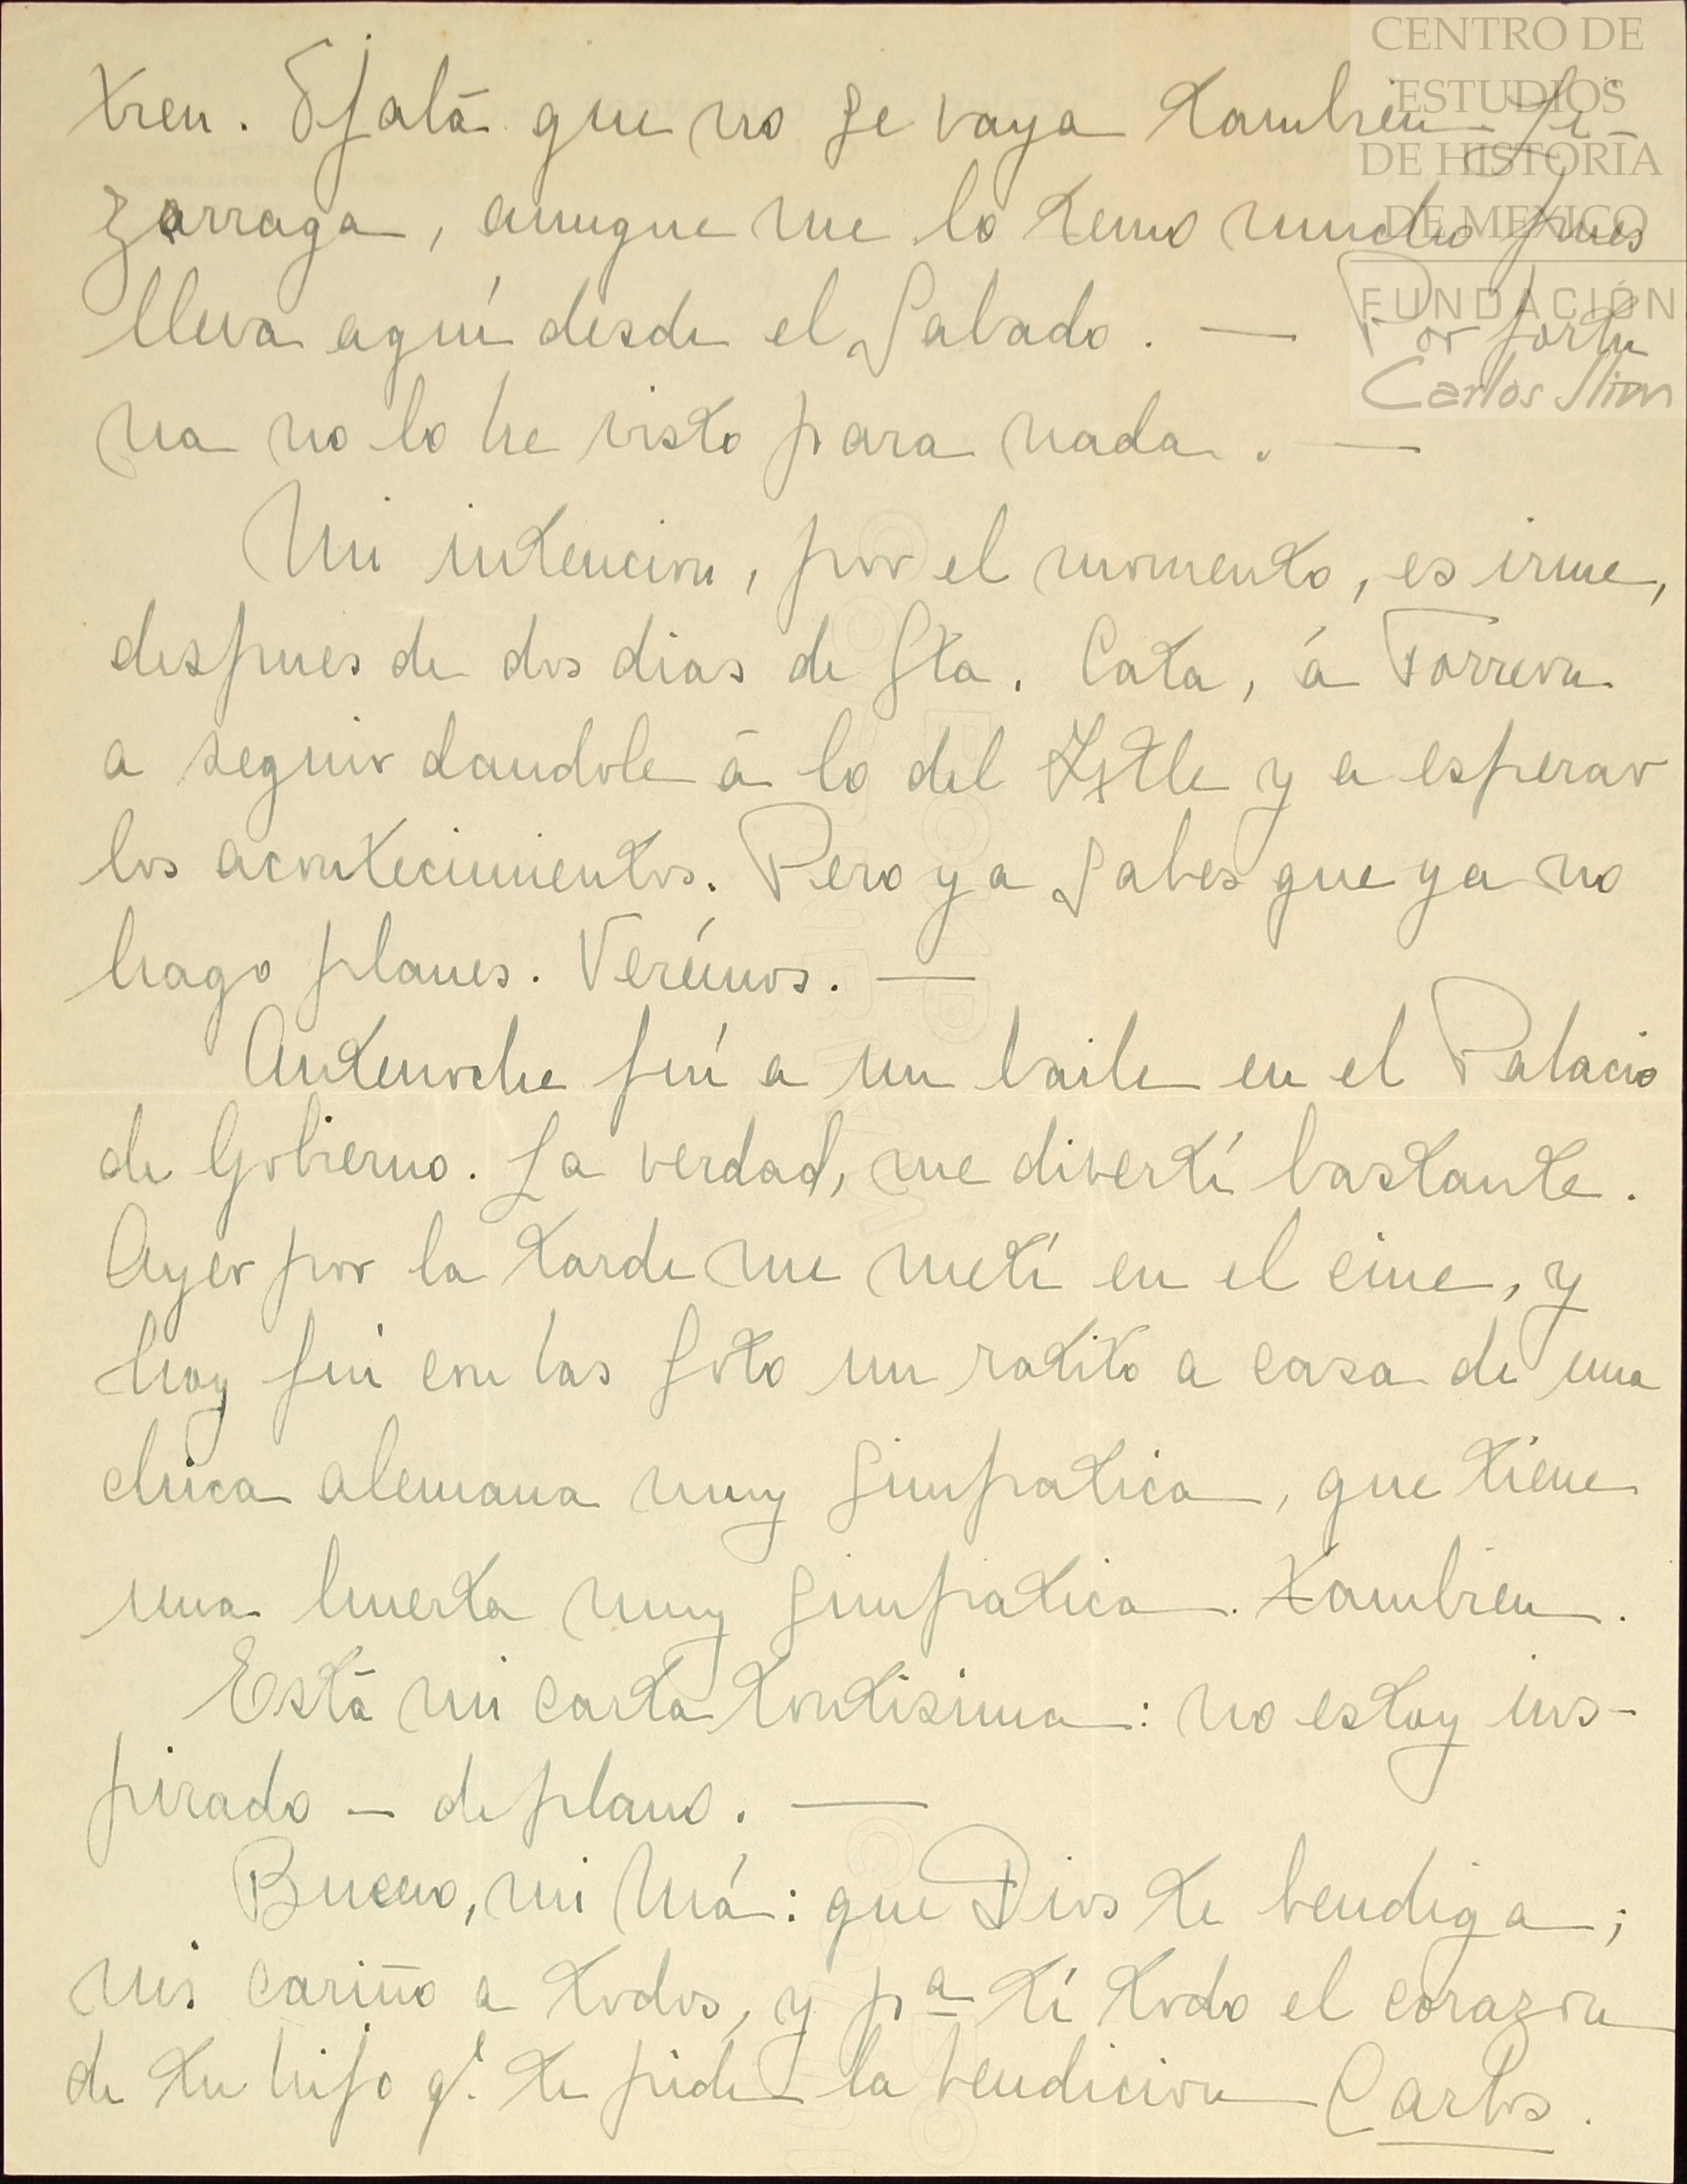 CENTRO DE
ESTUDIOS
DE HISTORIA
DE MEXICO
FUNDACIÓN
Carlos Slim
tren. Ojalá que no se vaya tambien Li-
zarraga, aunque me lo temo mucho pues
lleva aquí desde el Sabado. — Por fortu
na no lo he visto para nada. —
Mi intencion, por el momento, es irme,
despues de dos dias de Sta. Cata, á Torreon
a seguir dandole á lo del Ixtle y a esperar
los acontecimientos. Pero ya sabes que ya no
hago planes. Verémos. —
Antenoche fuí a un baile en el Palacio
de Gobierno. La verdad, me divertí bastante.
Ayer por la tarde me metí en el cine, y
hoy fuí con las Soto un ratito a casa de una
chica alemana muy simpatica, que tiene
una huerta muy simpatica tambien.
Está mi carta tontisima: no estoy ins-
pirado — de plano. —
Bueno, mi Má: que Dios te bendiga;
mis cariño a todos, y pª tí todo el corazon
de tu hijo q'. te pide la bendicion Carlos.